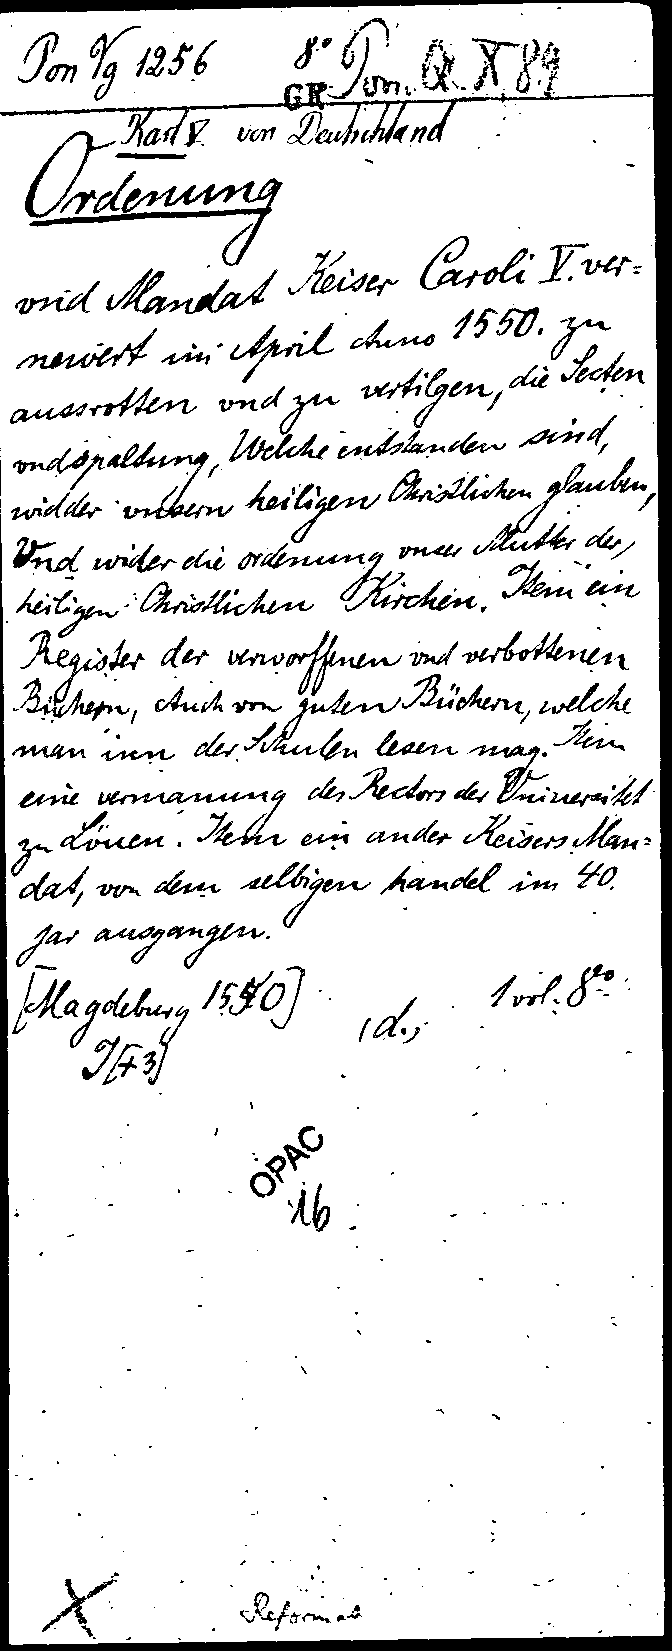 Pon Vg 1256 8° Pom. Q. X, 89
GK
Karl V. von Deutschland
Ordenung
vnd Mandat Keiser Caroli V. ver=
newert im April Anno 1550. zu
aussrotten vnd zu vertilgen, die Secten
vnd spaltung, Welche entstanden sind,
widder vnsern heiligen Christlichen glauben,
Vnd wider die ordenung vnser Mutter der,
heiligen Christlichen Kirchen. Item ein
Register der verworffenen vnd verbottenen
Büchern, Auch von guten Büchern, welche
man inn der Schulen lesen mag. Item
eine vermanung des Rectors der Vniuersitet
zu Löuen. Item ein ander Keisers Man=
dat, von dem selbigen handel im 40.
jar ausgangen.
[Magdeburg 1550] 1 vol. 8vo
(d.)
OPAC
16
Reformat